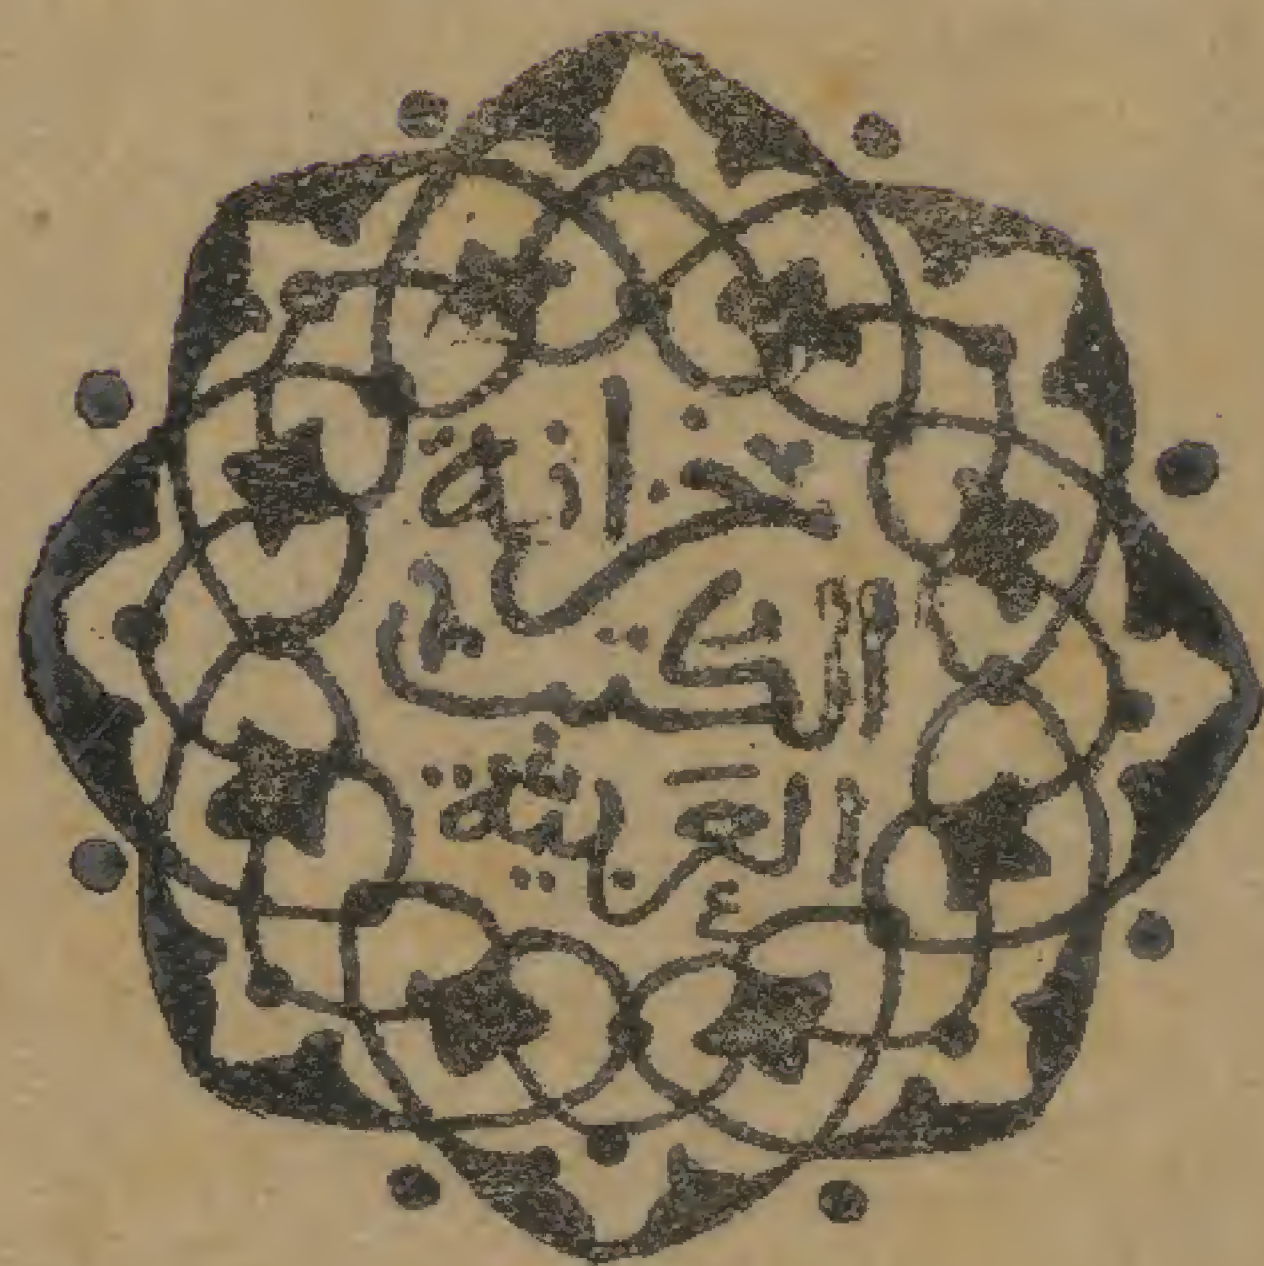 خزانة
الكتب
العربية